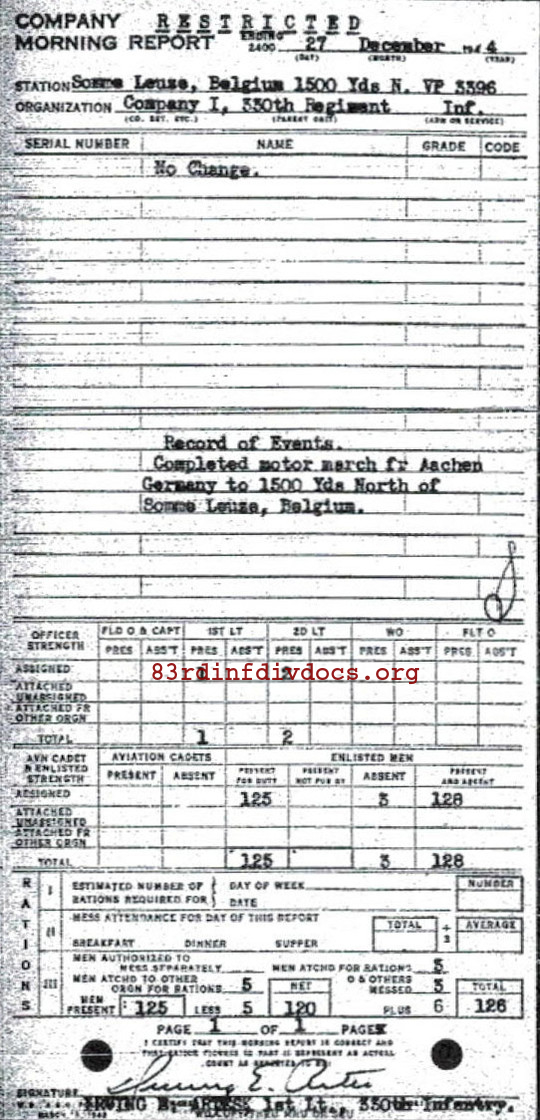 COMPANY RESTRICTED
MORNING REPORT ENDING 2400 27 December 194 4
(DAY) (MONTH) (YEAR)
STATION Somme Leuze, Belgium 1500 Yds N. VP 3396
ORGANIZATION Company I, 330th Regiment Inf.
(CO. DET. ETC.) (PARENT UNIT) (ARM OR SERVICE)
SERIAL NUMBER NAME GRADE CODE
No Change.
Record of Events.
Completed motor march fr Aachen
Germany to 1500 Yds North of
Somme Leuze, Belgium.
OFFICER STRENGTH FLD O & CAPT 1ST LT 2D LT WO FLT O
PRES ABS'T PRES ABS'T PRES ABS'T PRES ABS'T PRES ABS'T
ASSIGNED 1 2
83rdinfdivdocs.org
ATTACHED UNASSIGNED
ATTACHED FR OTHER ORGN
TOTAL 1 2
AVN CADET & ENLISTED STRENGTH AVIATION CADETS ENLISTED MEN
PRESENT ABSENT PRESENT FOR DUTY PRESENT NOT FOR DY ABSENT PRESENT AND ABSENT
ASSIGNED 125 3 128
ATTACHED UNASSIGNED
ATTACHED FR OTHER ORGN
TOTAL 125 3 128
RATIONS
I ESTIMATED NUMBER OF RATIONS REQUIRED FOR DAY OF WEEK DATE NUMBER
II MESS ATTENDANCE FOR DAY OF THIS REPORT TOTAL ÷ 3 AVERAGE
BREAKFAST DINNER SUPPER
III MEN AUTHORIZED TO MESS SEPARATELY MEN ATCHD FOR RATIONS 3
MEN ATCHD TO OTHER ORGN FOR RATIONS 5 NET O & OTHERS MESSED 3 TOTAL
MEN PRESENT 125 LESS 5 120 PLUS 6 126
PAGE 1 OF 1 PAGES
I CERTIFY THAT THIS MORNING REPORT IS CORRECT AND
SIGNATURE Irving E.
IRVING E. 1st Lt., 330th Infantry.